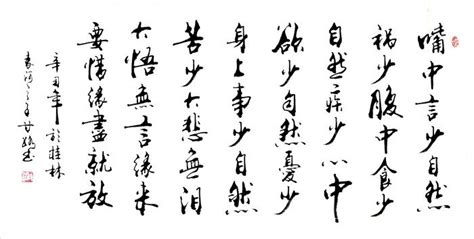 嘴中言少自然
祸少腹中食少
自然疾少心中
欲少自然憂少
身上事少自然
苦少大悲無泪
大悟無言緣来
要惜緣盡就放
辛丑年於桂林